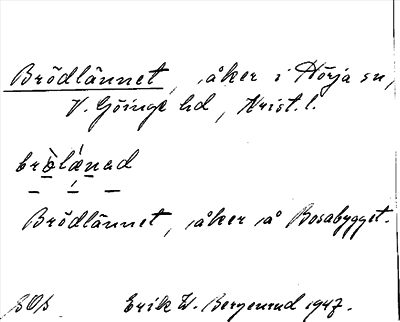 Brödlännet, åker i Hörja sn,
V. Göinge hd, Krist. l.
bròlǽnəd
Brödlännet, åker å Bosabygget.
Erik W. Bergenrud 1947.